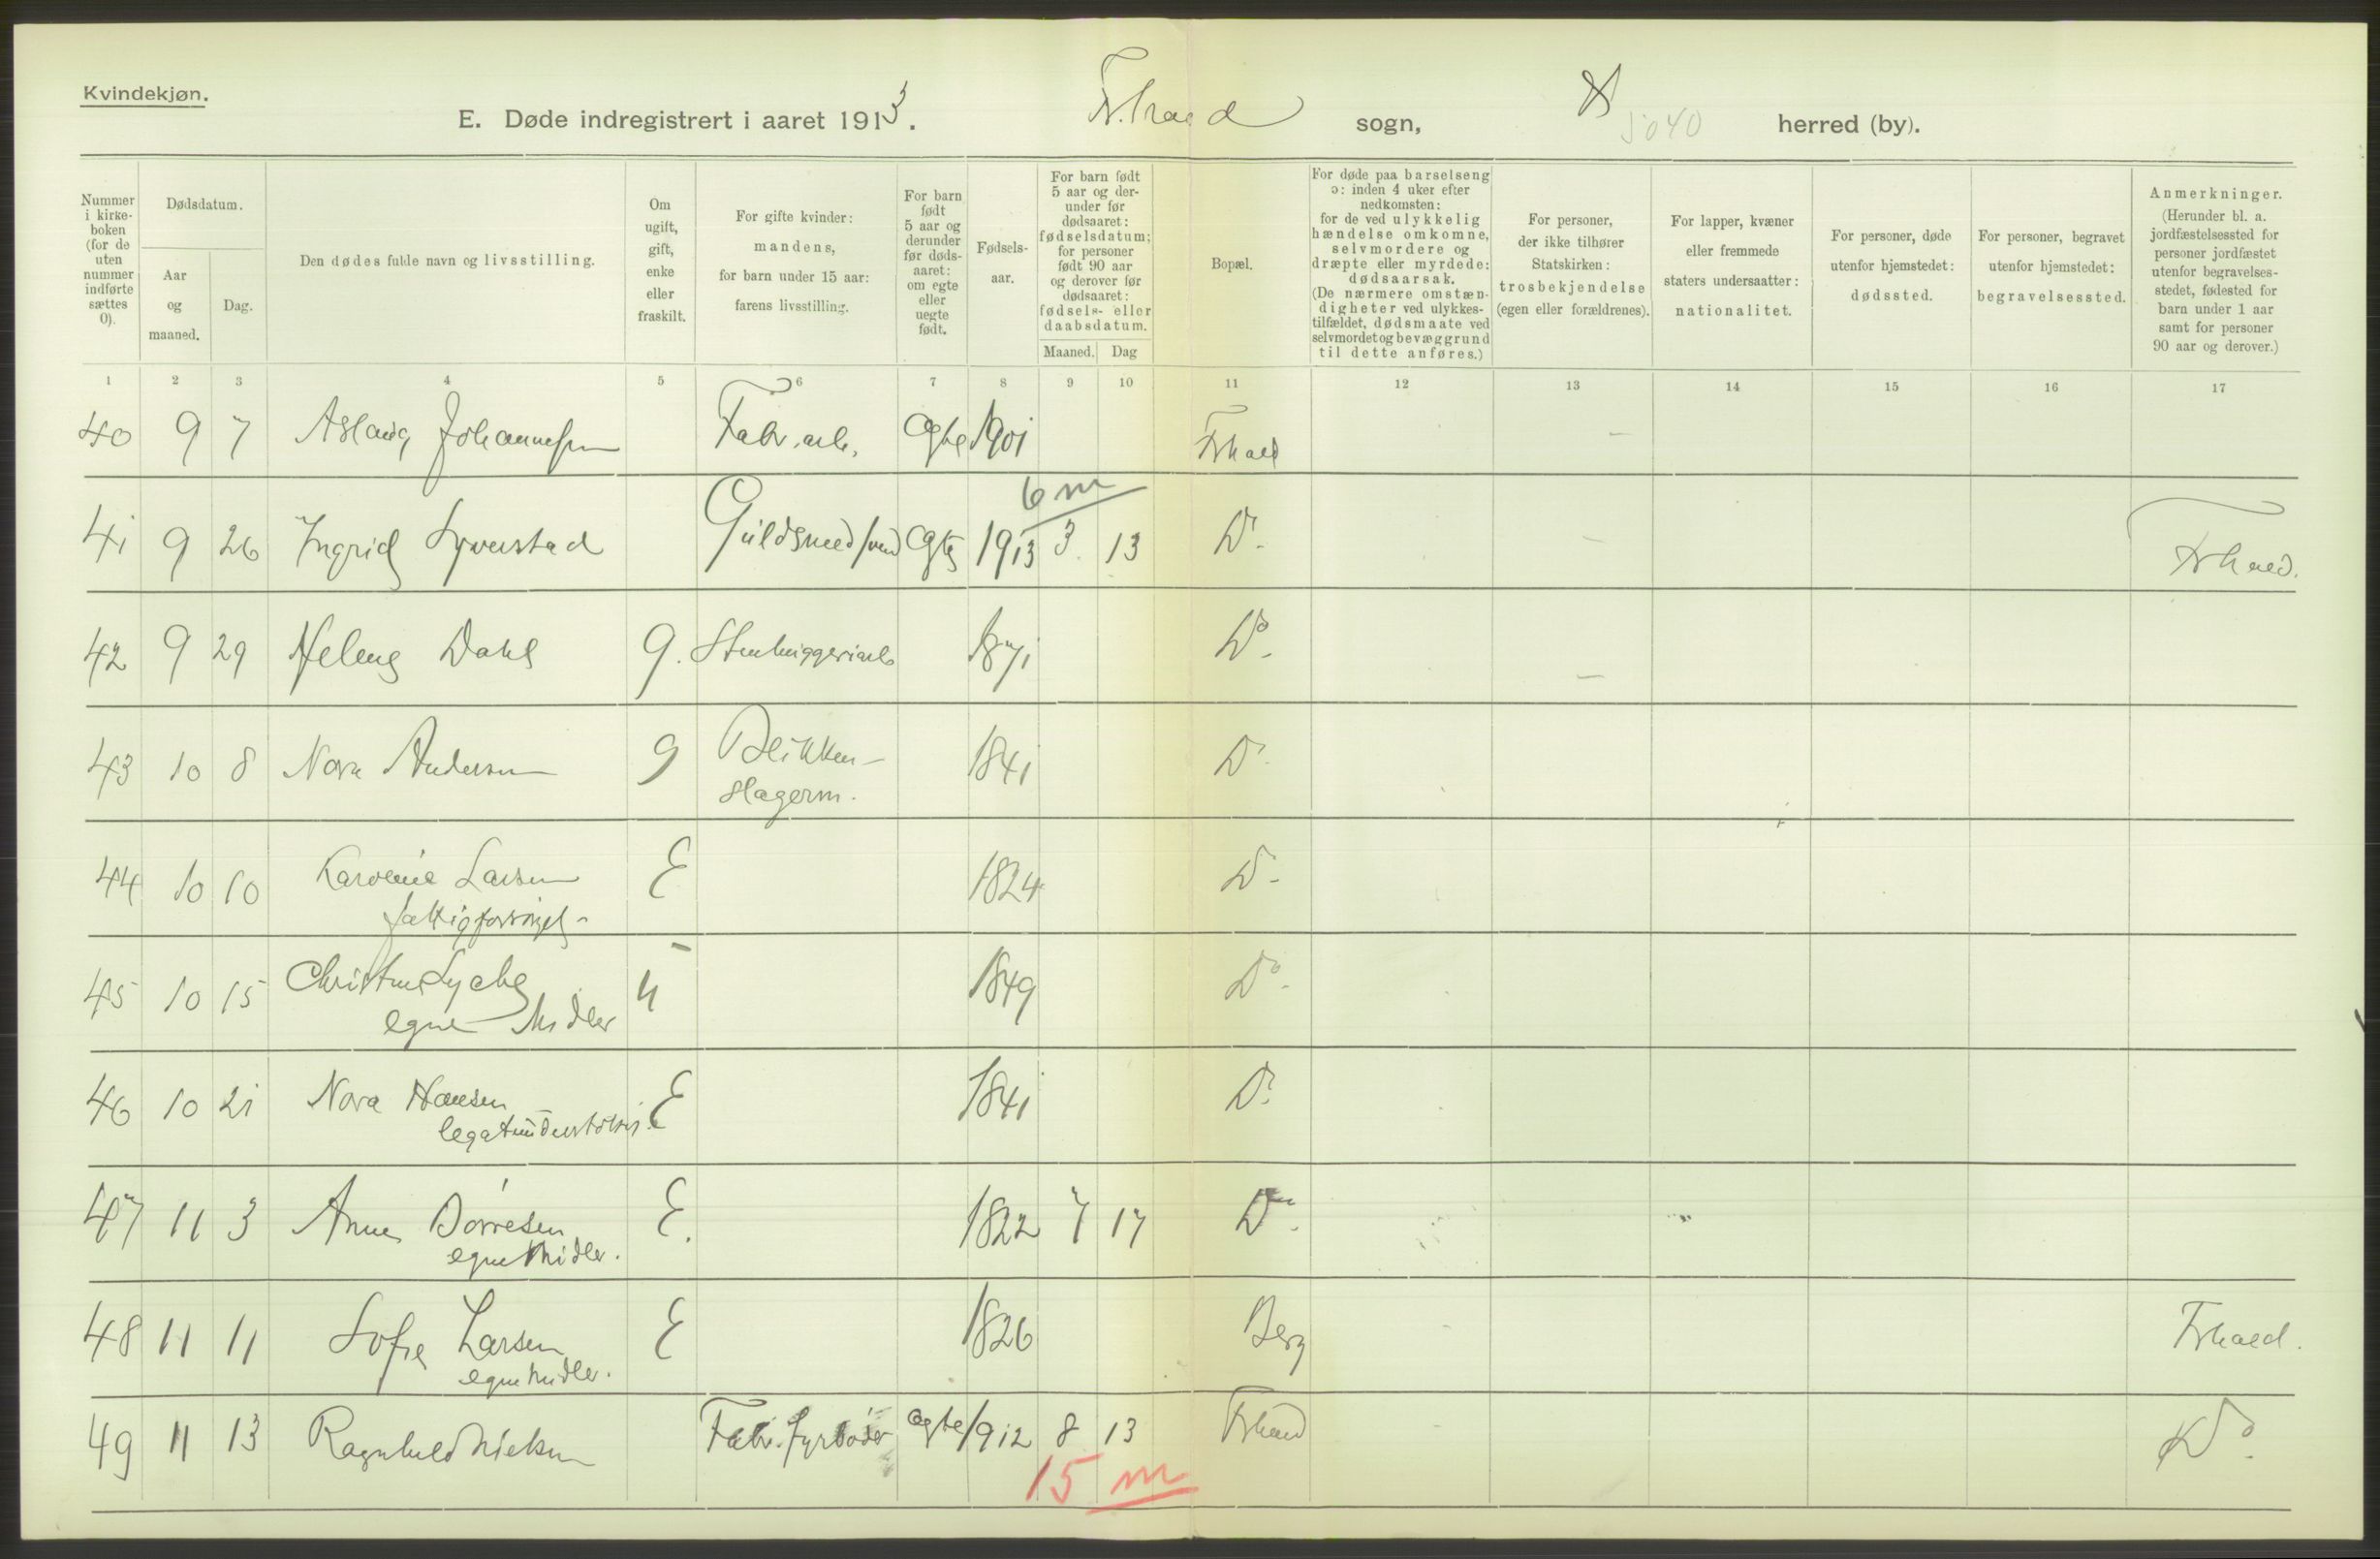 Kvindekjøn.
E. Døde indregistrert i aaret 1913. Fr.hald sogn, 5040 herred (by).
Nummer i kirke-boken (for de uten nummer indførte sættes 0).
Dødsdatum.
Aar og maaned.
Dag.
Den dødes fulde navn og livsstilling.
Om ugift, gift, enke eller fraskilt.
For gifte kvinder: mandens, for barn under 15 aar: farens livsstilling.
For barn født 5 aar og derunder før døds-aaret: om egte eller uegte født.
Fødsels-aar.
For barn født 5 aar og der-under før dødsaaret: fødselsdatum; for personer født 90 aar og derover før dødsaaret: fødsels- eller daabsdatum.
Maaned. Dag
Bopæl.
For døde paa barselseng ɔ: inden 4 uker efter nedkomsten: for de ved ulykkelig hændelse omkomne, selvmordere og dræpte eller myrdede: dødsaarsak. (De nærmere omstæn-digheter ved ulykkes-tilfældet, dødsmaate ved selvmordet og bevæggrund til dette anføres.)
For personer, der ikke tilhører Statskirken: trosbekjendelse (egen eller forældrenes).
For lapper, kvæner eller fremmede staters undersaatter: nationalitet.
For personer, døde utenfor hjemstedet: dødssted.
For personer, begravet utenfor hjemstedet: begravelsessted.
Anmerkninger. (Herunder bl. a. jordfæstelsessted for personer jordfæstet utenfor begravelses-stedet, fødested for barn under 1 aar samt for personer 90 aar og derover.)
1 2 3 4 5 6 7 8 9 10 11 12 13 14 15 16 17
40 9 7 Aslaug Johannesen Fabr.arb. Egte 1901 Frhald
6 m
41 9 26 Ingrid Syverstad Guldsmedsvend Egte 1913 3 13 Do. Frhald.
42 9 29 Helene Dahl g. Stenhuggeriarb 1871 Do.
43 10 8 Nora Andersen g Blikken- 1841 Do.
slagerm.
44 10 10 Karoline Larsen E 1824 Do.
fattigforsørget
45 10 15 Christine Lyche u 1849 Do.
egne Midler
46 10 21 Nora Hansen E 1841 Do.
legatunderstøttet
47 11 3 Anne Dørresen E. 1822 7 17 Do.
egne Midler.
48 11 11 Sofie Larsen E 1826 Berg Frhald.
egne Midler.
49 11 13 Ragnhild Nielsen Fabr. fyrbøder egte 1912 8 13 Frhald Do.
15 m